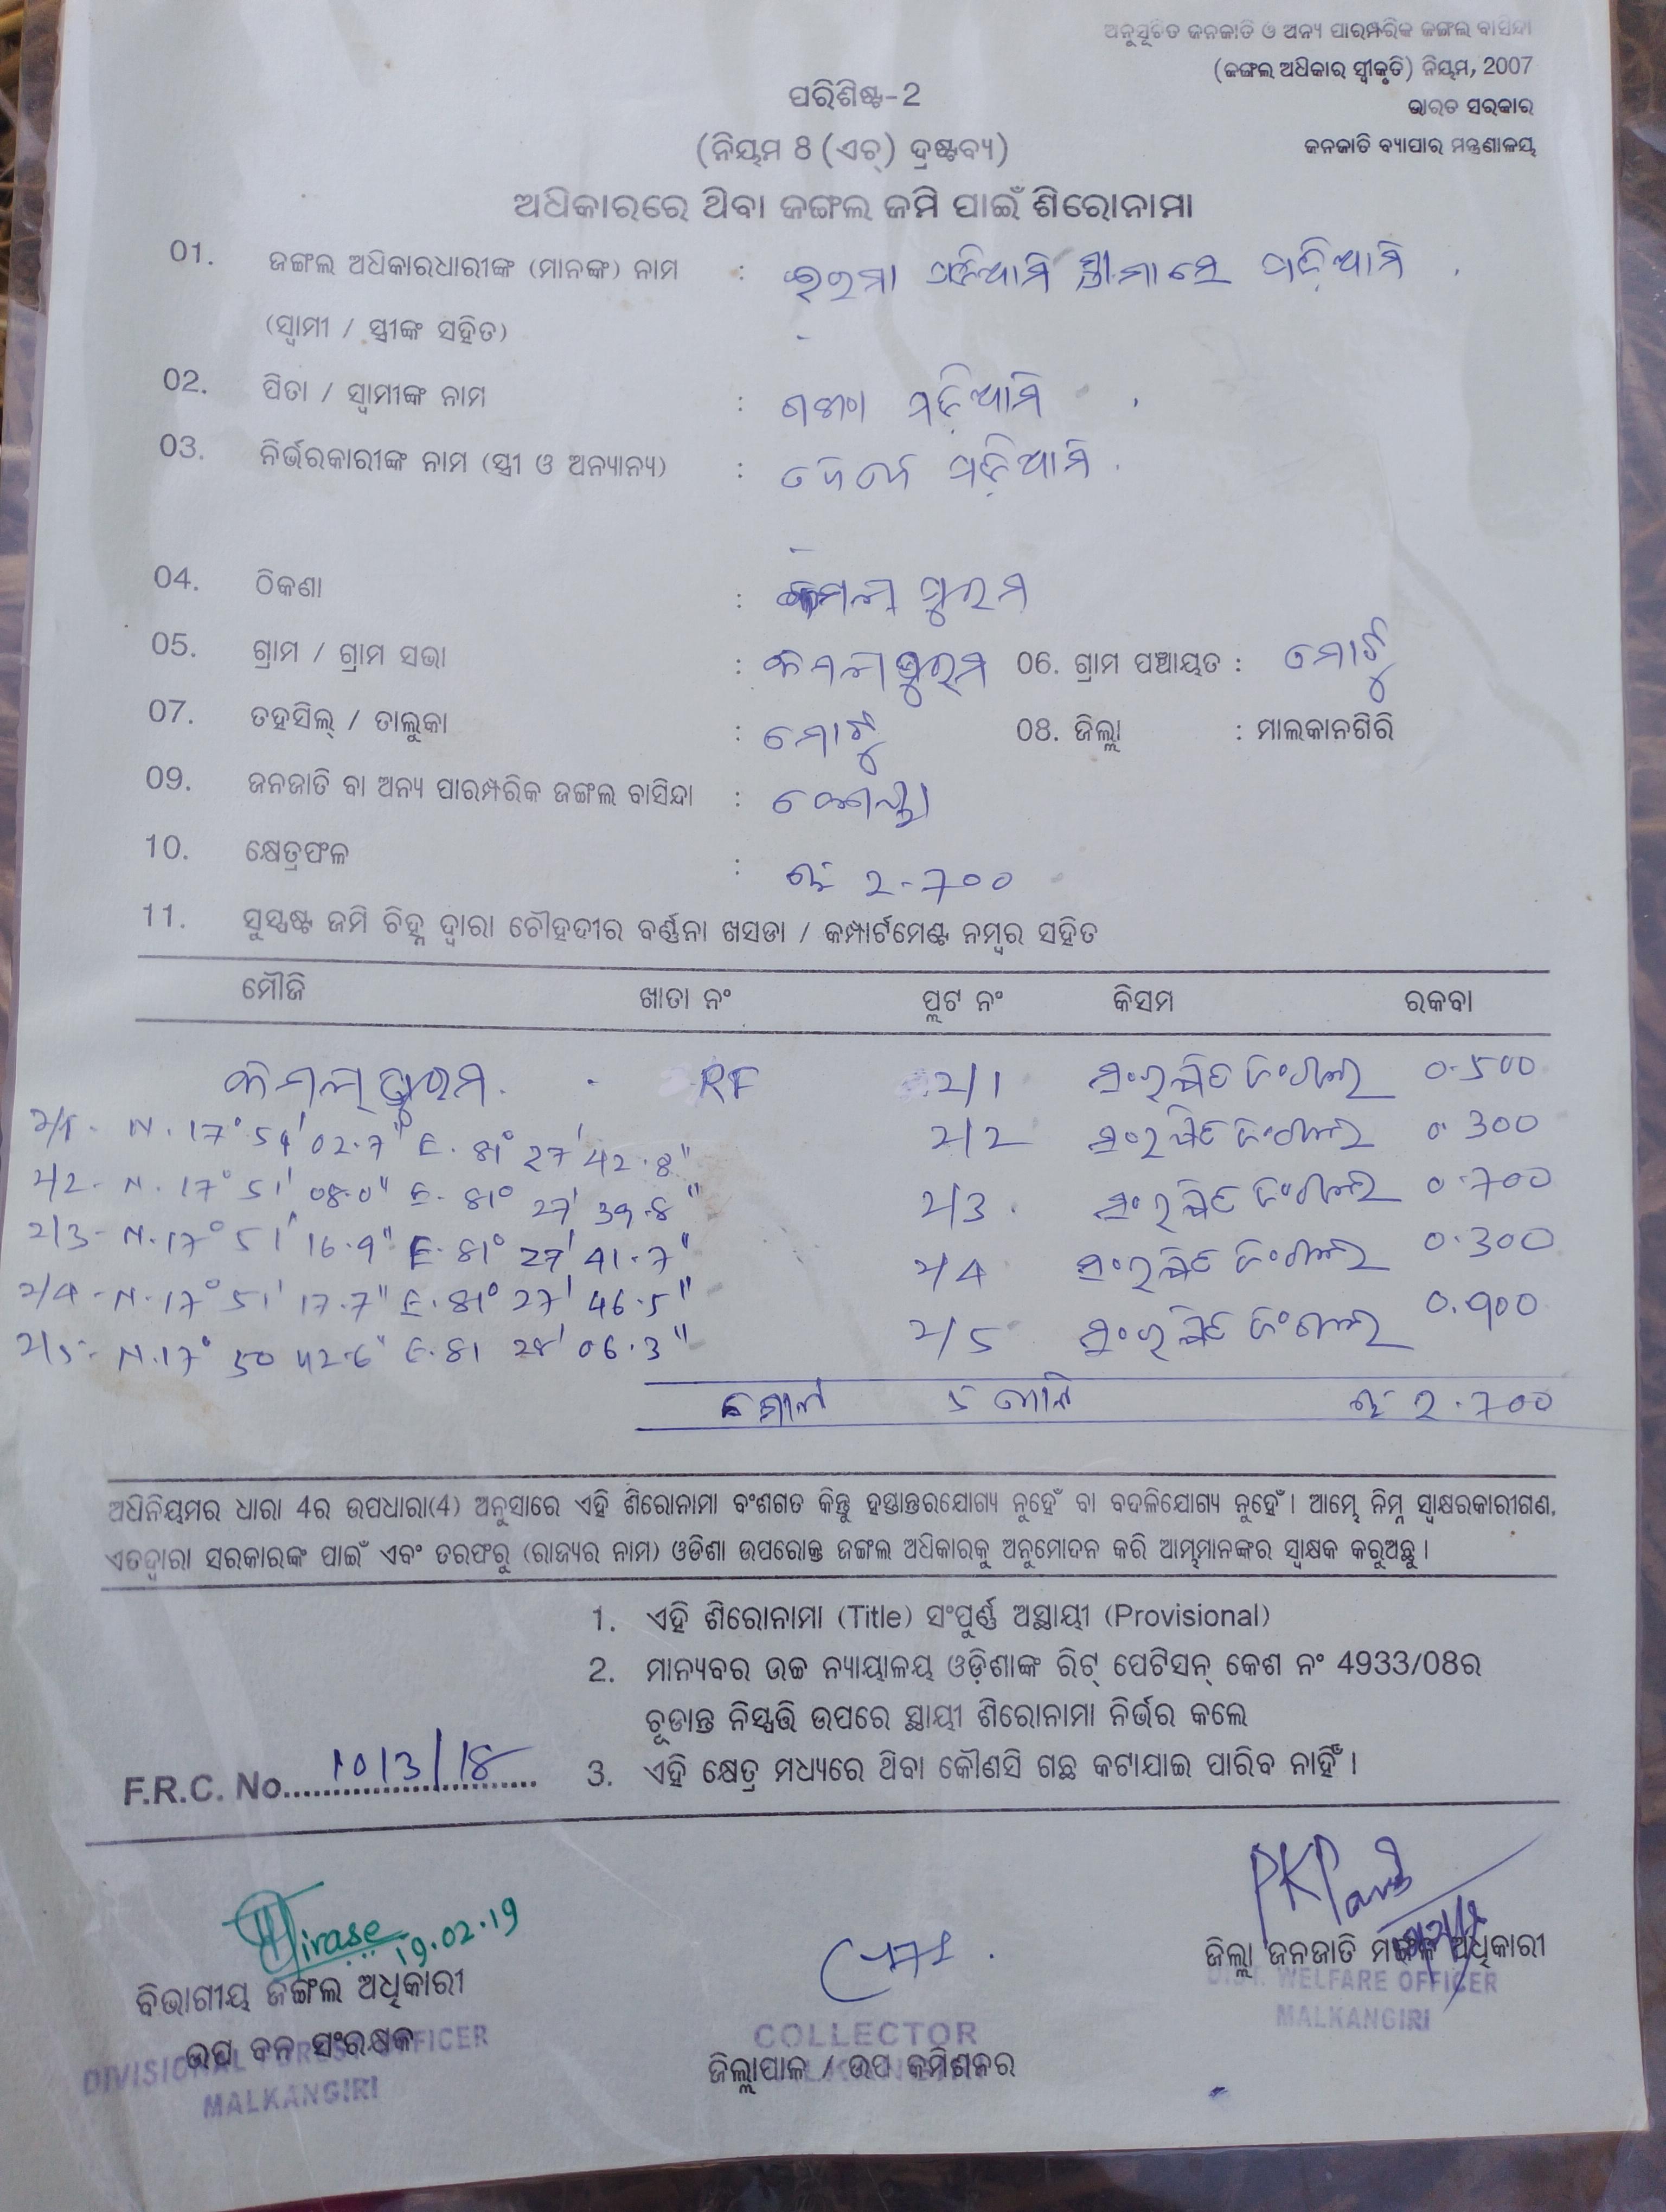 ଅନୁସୂଚିତ ଜନଜାତି ଓ ଅନ୍ୟ ପାରମ୍ପରିକ ଜଙ୍ଗଲ ବାସିନ୍ଦା
(ଜଙ୍ଗଲ ଅଧିକାର ସ୍ୱୀକୃତି) ନିୟମ, 2007
ଭାରତ ସରକାର
ଜନଜାତି ବ୍ୟାପାର ମନ୍ତ୍ରଣାଳୟ
ପରିଶିଷ୍ଟ-2
(ନିୟମ 8 (ଏଚ୍) ଦ୍ରଷ୍ଟବ୍ୟ)
ଅଧିକାରରେ ଥିବା ଜଙ୍ଗଲ ଜମି ପାଇଁ ଶିରୋନାମା
01. ଜଙ୍ଗଲ ଅଧିକାରଧାରୀଙ୍କ (ମାନଙ୍କ) ନାମ : ପଡ଼ିଆମି ପଡ଼ିଆମି
(ସ୍ୱାମୀ / ସ୍ତ୍ରୀଙ୍କ ସହିତ)
02. ପିତା / ସ୍ୱାମୀଙ୍କ ନାମ : ପଡ଼ିଆମି
03. ନିର୍ଭରକାରୀଙ୍କ ନାମ (ସ୍ତ୍ରୀ ଓ ଅନ୍ୟାନ୍ୟ) : ପଡ଼ିଆମି
04. ଠିକଣା : କମଲାପୁରମ
05. ଗ୍ରାମ / ଗ୍ରାମ ସଭା : କମଲାପୁରମ 06. ଗ୍ରାମ ପଞ୍ଚାୟତ : ମୋଟୁ
07. ତହସିଲ୍ / ତାଲୁକା : ମୋଟୁ 08. ଜିଲ୍ଲା : ମାଲକାନଗିରି
09. ଜନଜାତି ବା ଅନ୍ୟ ପାରମ୍ପରିକ ଜଙ୍ଗଲ ବାସିନ୍ଦା : କୋୟା
10. କ୍ଷେତ୍ରଫଳ : ଏ: ୨.୭୦୦
11. ସୁସ୍ପଷ୍ଟ ଜମି ଚିହ୍ନ ଦ୍ୱାରା ଚୌହଦୀର ବର୍ଣ୍ଣନା ଖସଡା / କମ୍ପାର୍ଟମେଣ୍ଟ ନମ୍ବର ସହିତ
ମୌଜି ଖାତା ନଂ ପ୍ଲଟ ନଂ କିସମ ରକବା
କମଲାପୁରମ RF 2/1 ସଂରକ୍ଷିତ ଜଂଗଲ 0.500
2/1- N.17° 51' 02.7" E.81° 27' 42.8"
2/2 ସଂରକ୍ଷିତ ଜଂଗଲ 0.300
2/2- N.17° 51' 08.0" E.81° 27' 39.8"
2/3 ସଂରକ୍ଷିତ ଜଂଗଲ 0.700
2/3- N.17° 51' 16.9" E.81° 27' 41.7"
2/4 ସଂରକ୍ଷିତ ଜଂଗଲ 0.300
2/4- N.17° 51' 17.7" E.81° 27' 46.5"
2/5 ସଂରକ୍ଷିତ ଜଂଗଲ 0.900
2/5- N.17° 50 42.6" E.81 28' 06.3"
ମୋଟ 5 ଏ: ୨.୭୦୦
ଅଧିନିୟମର ଧାରା 4ର ଉପଧାରା(4) ଅନୁସାରେ ଏହି ଶିରୋନାମା ବଂଶଗତ କିନ୍ତୁ ହସ୍ତାନ୍ତରଯୋଗ୍ୟ ନୁହେଁ ବା ବଦଳିଯୋଗ୍ୟ ନୁହେଁ । ଆମ୍ଭେ ନିମ୍ନ ସ୍ୱାକ୍ଷରକାରୀଗଣ,
ଏତଦ୍ୱାରା ସରକାରଙ୍କ ପାଇଁ ଏବଂ ତରଫରୁ (ରାଜ୍ୟର ନାମ) ଓଡିଶା ଉପରୋକ୍ତ ଜଙ୍ଗଲ ଅଧିକାରକୁ ଅନୁମୋଦନ କରି ଆମ୍ଭମାନଙ୍କର ସ୍ୱାକ୍ଷକ କରୁଅଛୁ ।
1. ଏହି ଶିରୋନାମା (Title) ସଂପୂର୍ଣ୍ଣ ଅସ୍ଥାୟୀ (Provisional)
2. ମାନ୍ୟବର ଉଚ୍ଚ ନ୍ୟାୟାଳୟ ଓଡ଼ିଶାଙ୍କ ରିଟ୍ ପେଟିସନ୍ କେଶ ନଂ 4933/08ର
ଚୂଡାନ୍ତ ନିସ୍ପତ୍ତି ଉପରେ ସ୍ଥାୟୀ ଶିରୋନାମା ନିର୍ଭର କଲେ
F.R.C. No. 1013/18
3. ଏହି କ୍ଷେତ୍ର ମଧ୍ୟରେ ଥିବା କୌଣସି ଗଛ କଟାଯାଇ ପାରିବ ନାହିଁ ।
19.02.19
ବିଭାଗୀୟ ଜଙ୍ଗଲ ଅଧିକାରୀ
ଉପ ବନ ସଂରକ୍ଷକ
DIVISIONAL FOREST OFFICER
MALKANGIRI
COLLECTOR
ଜିଲ୍ଲାପାଳ / ଉପ କମିଶକର
ଜିଲ୍ଲା ଜନଜାତି ମଙ୍ଗଳ ଅଧିକାରୀ
DIST. WELFARE OFFICER
MALKANGIRI